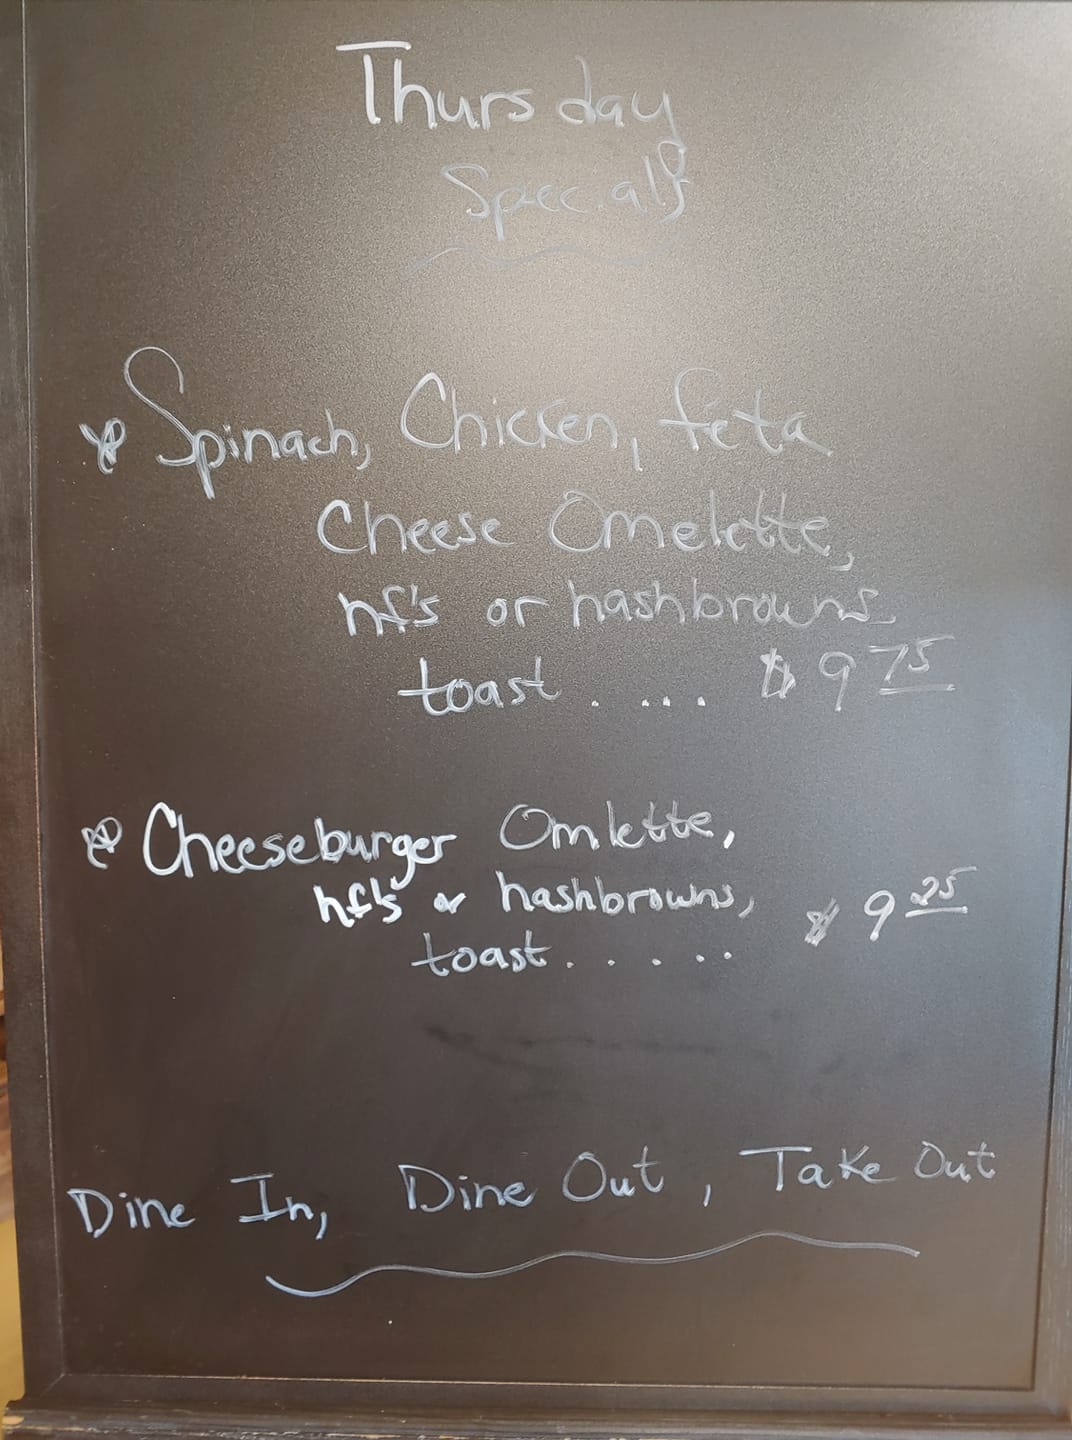 Thursday
Specials
Spinach, Chicken, feta
Cheese Omelette,
hf's or hashbrowns
toast ..... $9 75
Cheeseburger Omlette,
hf's or hashbrowns,
toast...... $9 25
Dine In, Dine Out, Take Out